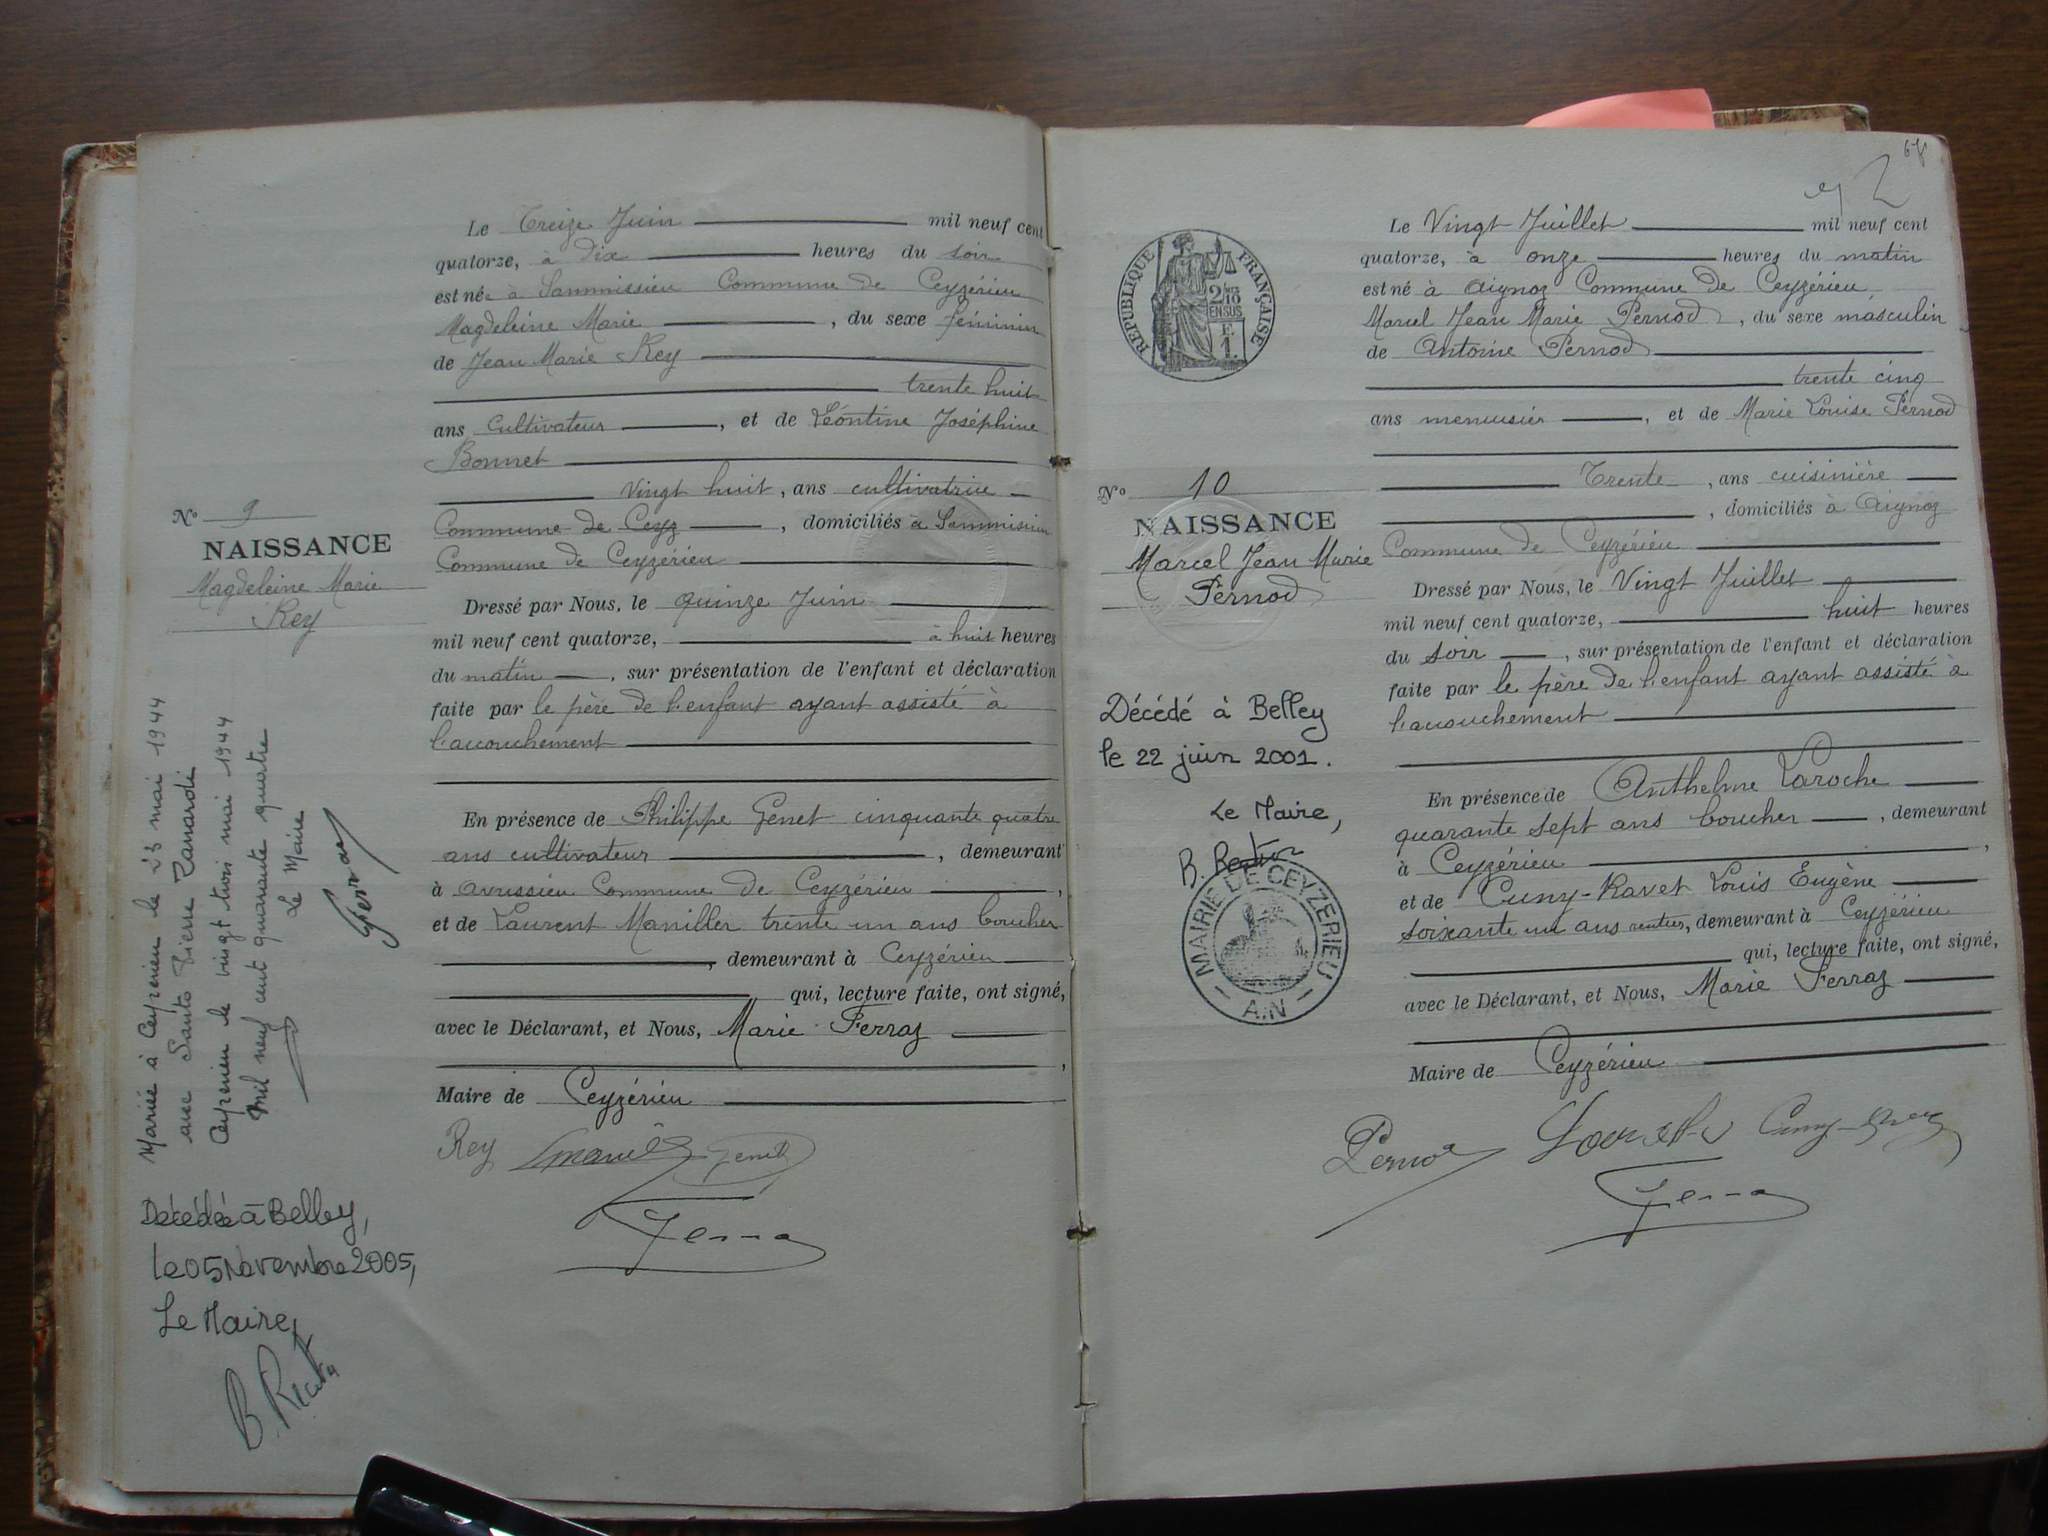 Le Treize Juin mil neuf cent
quatorze, à Dix heures du soir
est née à Sammissieu Commune de Ceyzérieu
Magdeleine Marie, du sexe féminin
de Jean Marie Rey
trente huit
ans Cultivateur, et de Léontine Joséphine
Bonnet
Vingt huit, ans cultivatrice
Commune de Ceyz, domiciliés à Sammissieu
Commune de Ceyzérieu
Dressé par Nous, le quinze Juin
mil neuf cent quatorze, à huit heures
du matin, sur présentation de l'enfant et déclaration
faite par le père de l'enfant ayant assisté à
l'accouchement
En présence de Philippe Genet cinquante quatre
ans cultivateur, demeurant
à Avrissieu Commune de Ceyzérieu,
et de Laurent Maniller trente un ans boucher
, demeurant à Ceyzérieu
qui, lecture faite, ont signé,
avec le Déclarant, et Nous, Marie Ferraz
,
Maire de Ceyzérieu
Rey
N° 9
NAISSANCE
Magdeleine Marie
Rey
Mariée à Ceyzérieu le 23 mai 1944
avec Santo Pierre Zanardi
Ceyzérieu le vingt trois mai 1944
Mil neuf cent quarante quatre
Le Maire
Décédée à Belley,
le 05 Novembre 2005,
Le Maire,
68
2
REPUBLIQUE FRANÇAISE
2/10
EN SUS
Le Vingt Juillet mil neuf cent
quatorze, à onze heures du matin
est né à Aignoz Commune de Ceyzérieu
Marcel Jean Marie Pernod, du sexe masculin
de Antoine Pernod
trente cinq
ans menuisier, et de Marie Louise Pernod
Trente, ans cuisinière
, domiciliés à Aignoz
Commune de Ceyzérieu
Dressé par Nous, le Vingt Juillet
mil neuf cent quatorze, huit heures
du soir, sur présentation de l'enfant et déclaration
faite par le père de l'enfant ayant assisté à
l'accouchement
En présence de Anthelme Laroche
quarante sept ans boucher, demeurant
à Ceyzérieu,
et de Cuny-Ravet Louis Eugène
soixante un ans rentier, demeurant à Ceyzérieu
qui, lecture faite, ont signé,
avec le Déclarant, et Nous, Marie Ferraz
Maire de Ceyzérieu
Pernod
N° 10
NAISSANCE
Marcel Jean Marie
Pernod
Décédé à Belley
le 22 juin 2001.
Le Maire,
MAIRIE DE CEYZERIEU
- AIN -